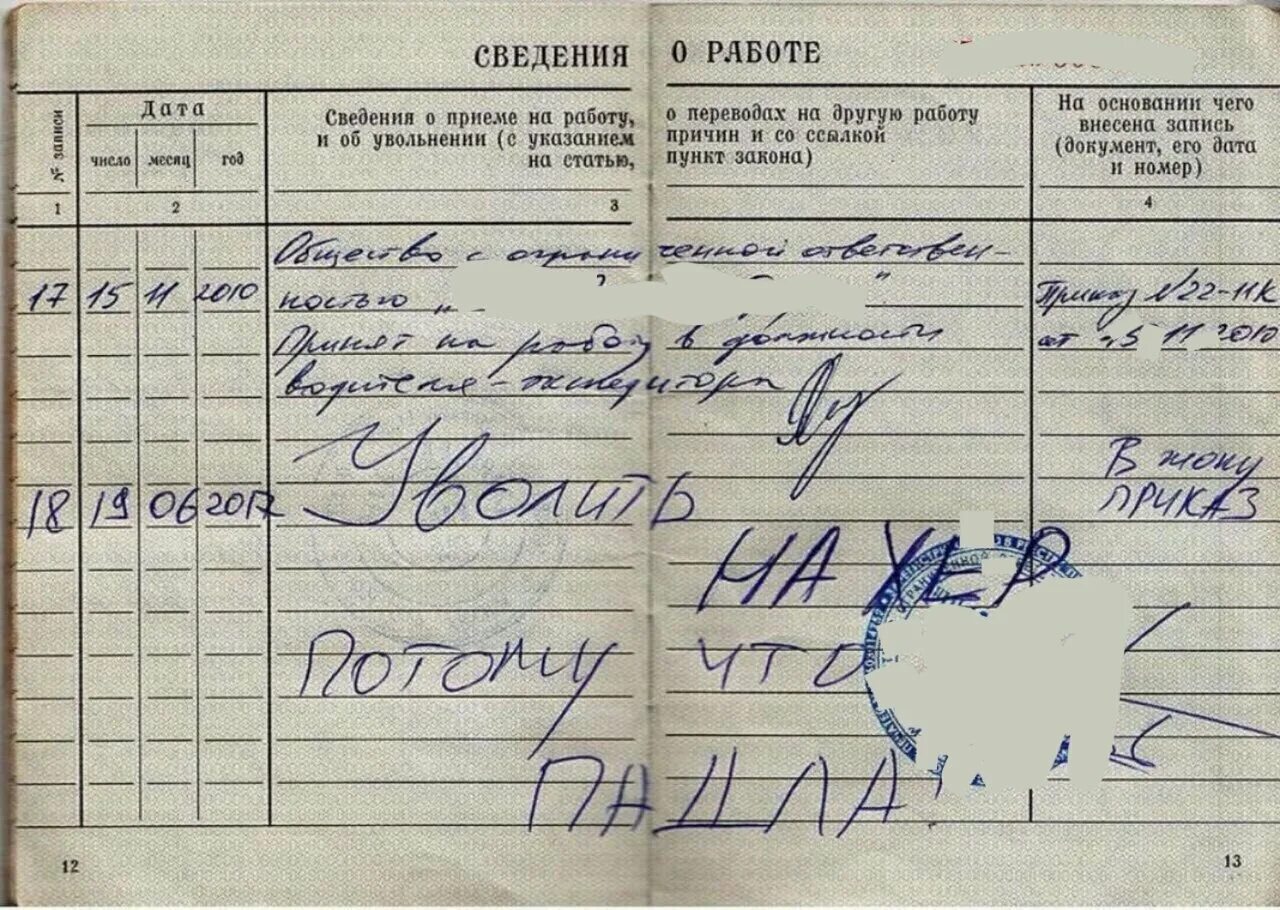 СВЕДЕНИЯ О РАБОТЕ
№ записи
Дата
число месяц год
Сведения о приеме на работу, о переводах на другую работу
и об увольнении (с указанием причин и со ссылкой
на статью, пункт закона)
На основании чего
внесена запись
(документ, его дата
и номер)
1 2 3 4
Общество с ограниченной ответствен-
17 15 11 2010 ностью „ "
Приказ №22-11К
Принят на работу в должности
от 15 11 2010
водителя-экспедитора
В жопу
18 19 06 2017 Уволить
ПРИКАЗ
НА ХЕР
ПОТОМУ ЧТО
ПАДЛА
12 13